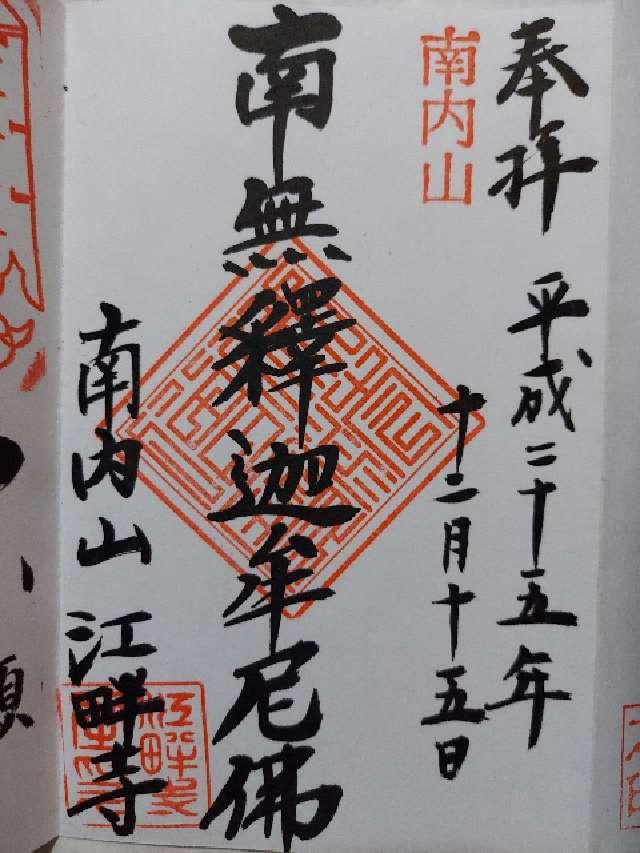 奉拝
平成二十五年
十二月十五日
南内山
南無釋迦牟尼佛
南内山
江畔寺